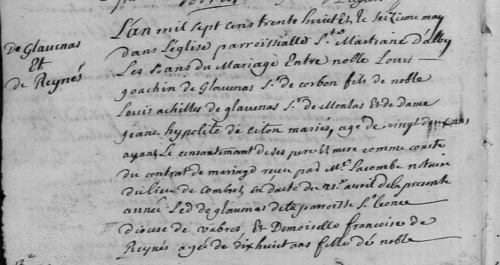 L'an mil sept cens trente huict Et le seizieme may
De Glauenas
Et
de Reynés
dans L'église parroissialle Ste Martiane d'alby
Les Ans du Mariage Entre noble Louis
joachin de Glauenas Sr de corbon fils de noble
Louis achilles de glauenas Sr de Monlas Et de Dame
jeane hypolite de mariés, agé de vingt deux ans
ayant Le consantemant de ses pere Et mere comme conste
du contrat de mariage receu par Me Lacombe notaire
du lieu de en date du avril de la presente
année Led de glauenas de la paroisse St
diocese de vabres, Et Demoiselle francoise de
Reynés agée de dix huict ans fille de noble